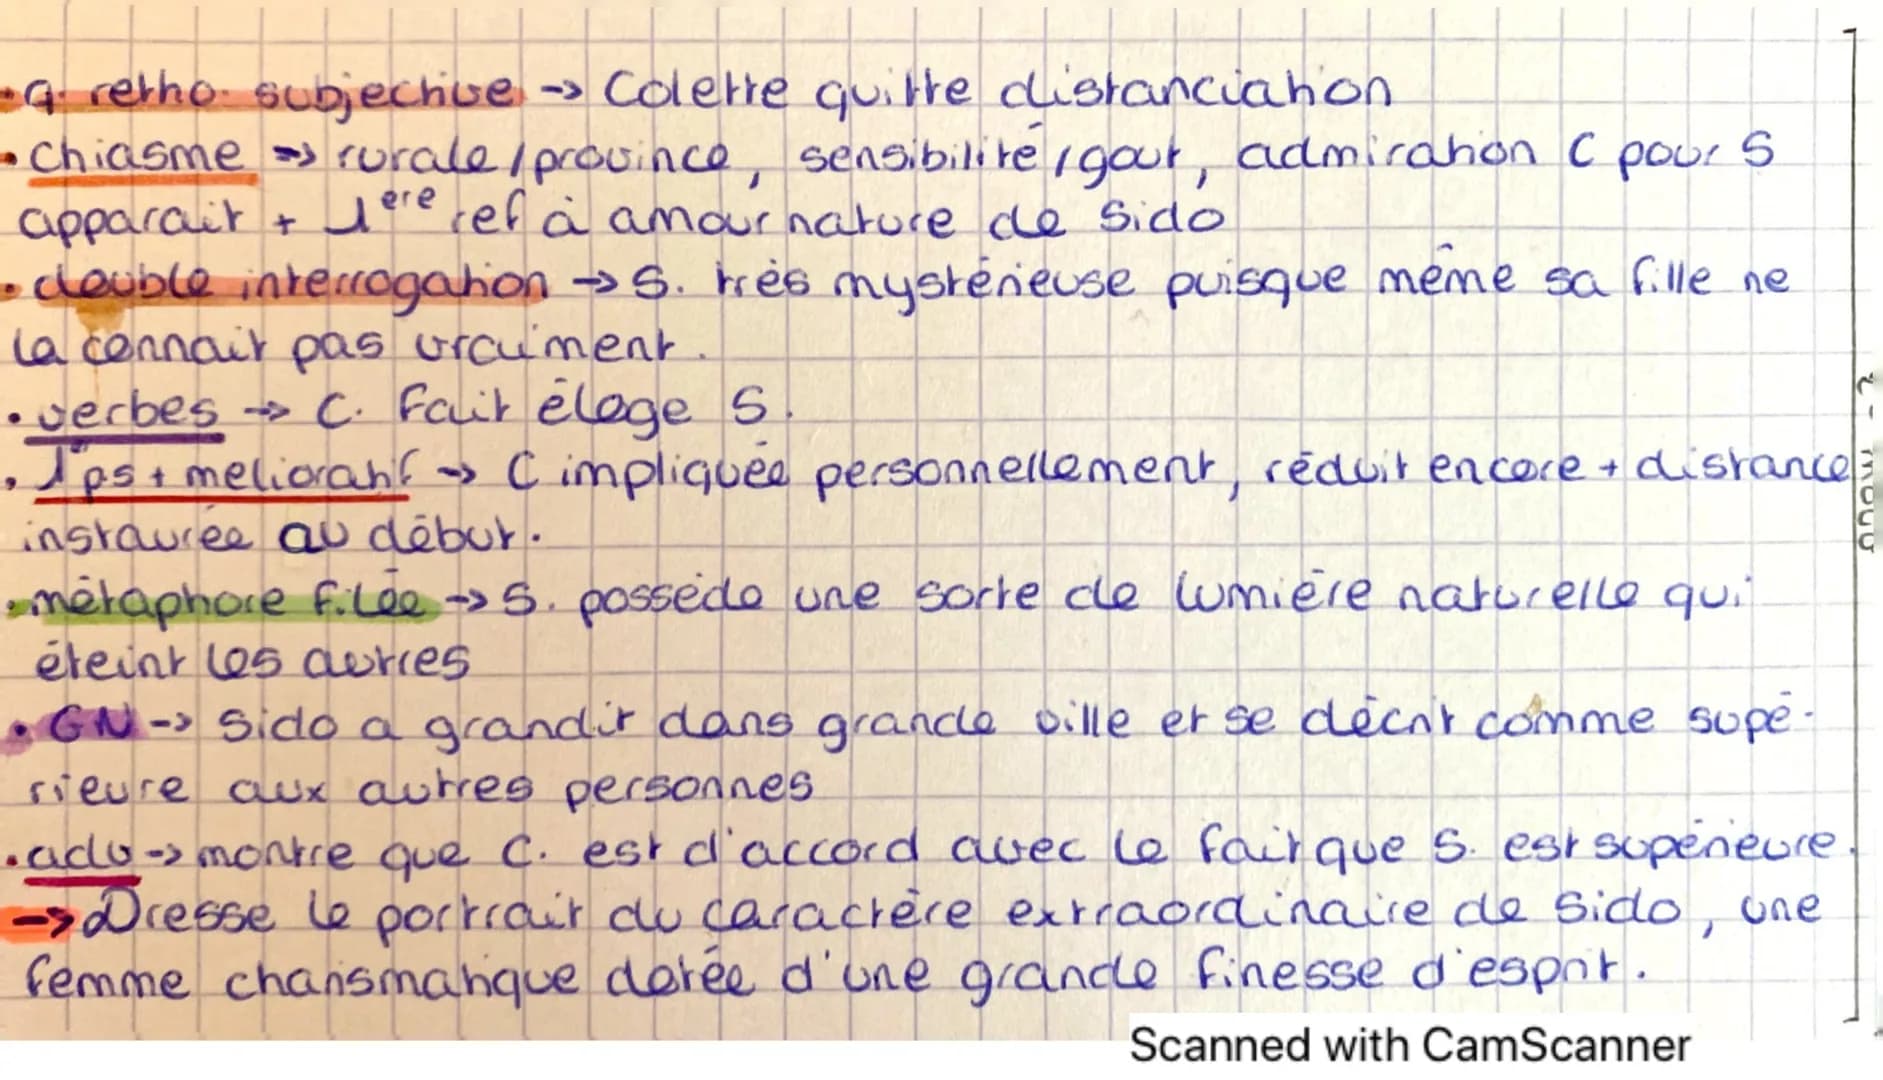 • q. retho. subjective -> Colette quitte distanciation
• chiasme => rurale/province, sensibilité/gout, admiration C pour S
apparait + 1ere ref à amour nature de Sido
• double interrogation -> S. très mystérieuse puisque même sa fille ne
la connait pas vraiment.
• verbes -> C. fait éloge S.
• 1ps + melioratif -> C impliquée personnellement, réduit encore + distance
instaurée au début.
• métaphore filée -> S. possède une sorte de lumière naturelle qui
éteint les autres
• GN -> Sido a grandit dans grande ville et se décrit comme supé-
rieure aux autres personnes
• adv -> montre que C. est d'accord avec le fait que S. est supérieure.
-> Dresse le portrait du caractère extraordinaire de Sido, une
femme charismatique dotée d'une grande finesse d'esprit.
Scanned with CamScanner